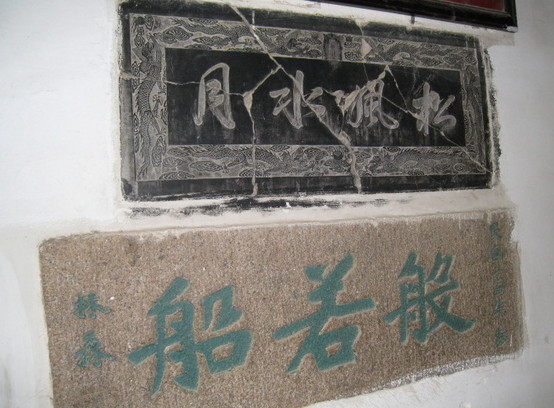 松風水月
般若船
林森